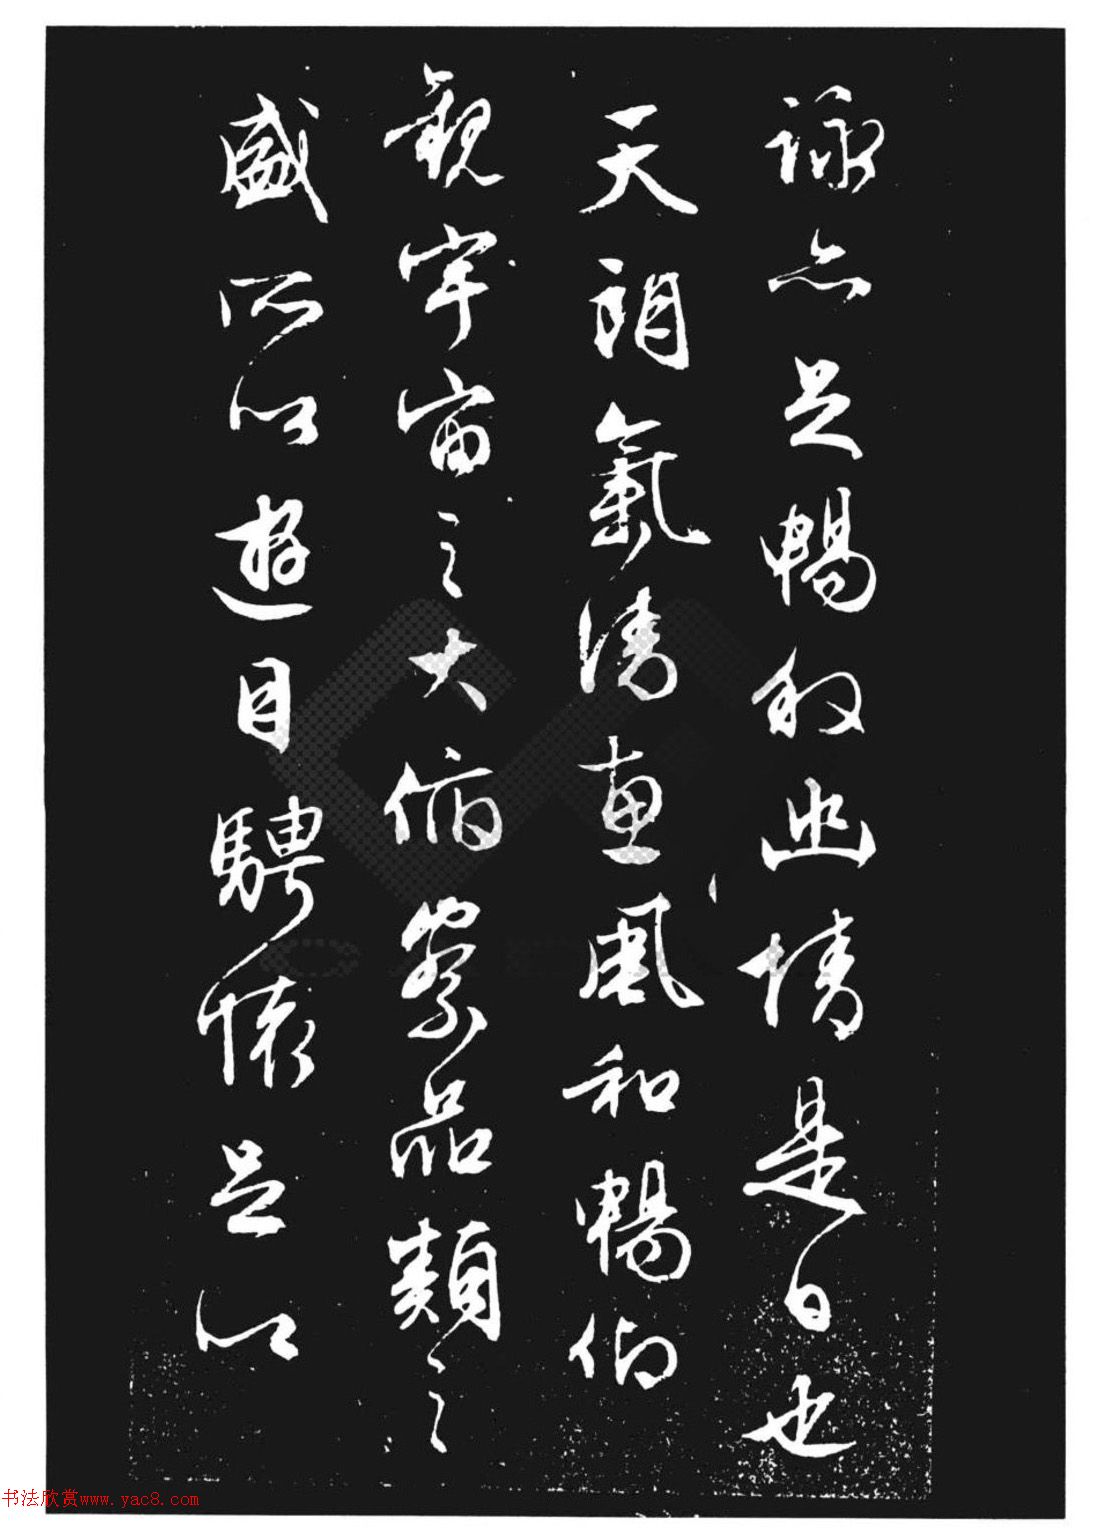 詠亦足暢敘幽情是日也
天朗氣清惠風和暢仰
觀宇宙之大俯察品類之
盛所以遊目騁懷足以
书法欣赏www.yac8.com